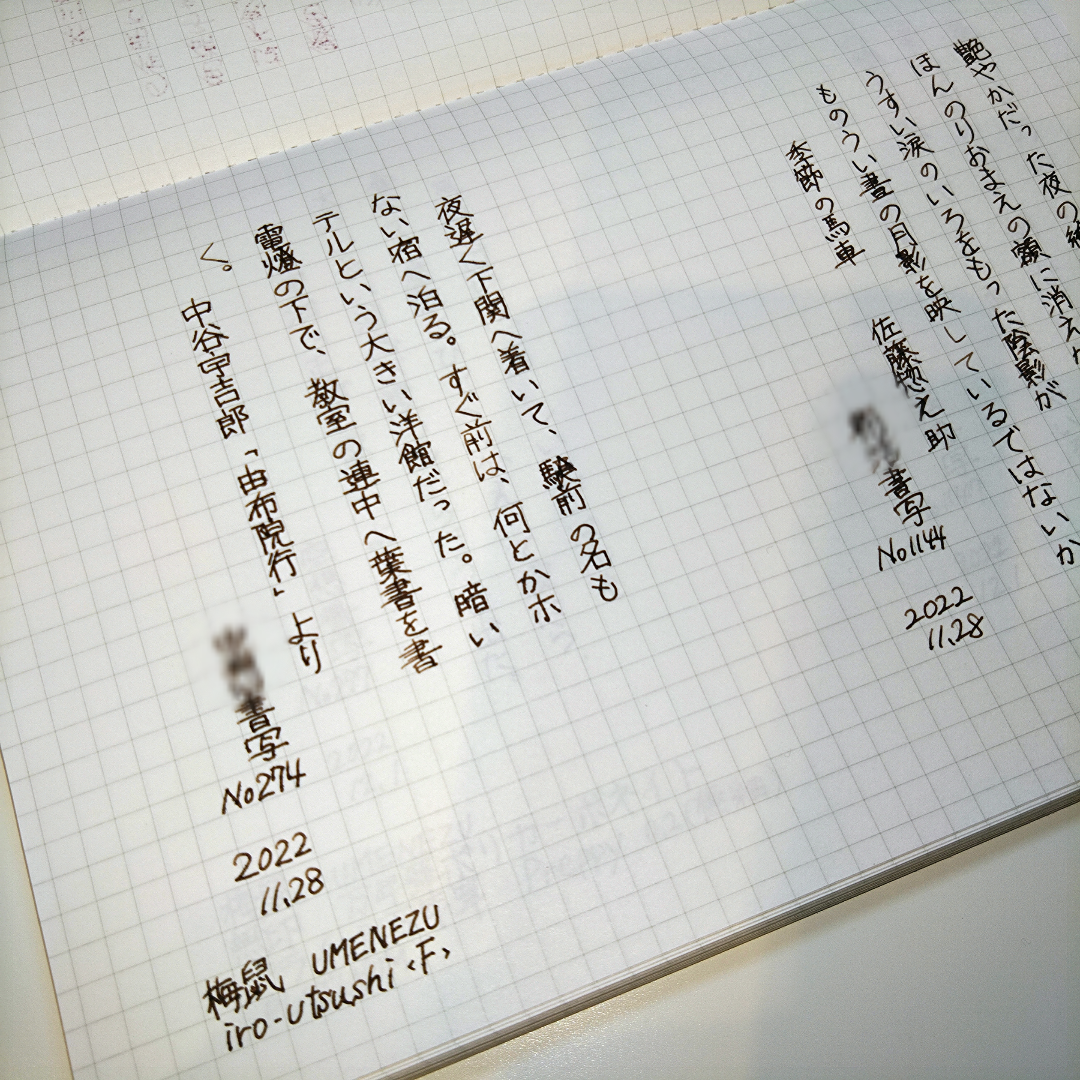 艶やかだった夜の
ほんのりおまえの額に消え
うすい涙のいろをもった陰影が
ものうい昼の月影を映しているではないか
季節の馬車
佐藤惣之助
書写
No1144
2022
11.28
夜遅く下関へ着いて、駅前の名も
ない宿へ泊る。すぐ前は、何とかホ
テルという大きい洋館だった。暗い
電燈の下で、教室の連中へ葉書を書
く。
中谷宇吉郎「由布院行」より
書写
No274
2022
11.28
梅鼠 UMENEZU
iro-utsushi <F>